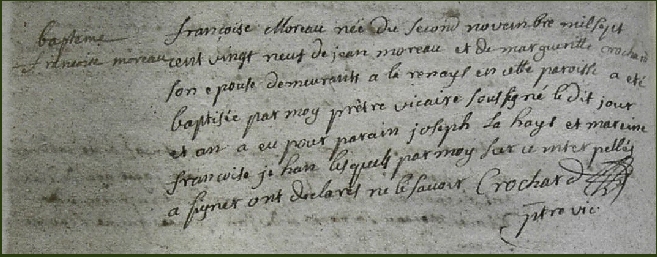 bapteme
francoise moreau
francoise Moreau née du second novembre mil sept
cent vingt neuf de jean moreau et de margueritte Crochard
son epouse demeurants a la renays en cette paroisse a eté
baptisée par moy prêtre vicaire soussigné le dit jour
et an a eu pour parain joseph la haye et mareine
francoise jehan lesquels par moy sur ce interpellés
a signer ont declarés ne le savoir Crochard
ptre vic